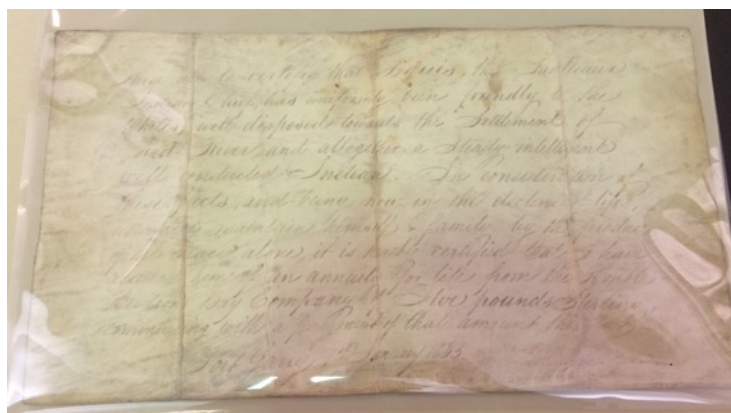 These are to certify that Peguis, the Saulteaux
Indian Chief, has uniformly been friendly to the
Whites, well disposed towards the Settlement of
Red River and altogether a Steady intelligent
well conducted Indian. In consideration of
these facts, and being now in the decline of life,
himself & family by the produce
of the alone, it is certified that I have
him an annuity for life from the Honble
Hudson's Bay Company of Five pounds Sterling,
commencing with a payment of that amount this
Fort Garry January 1835